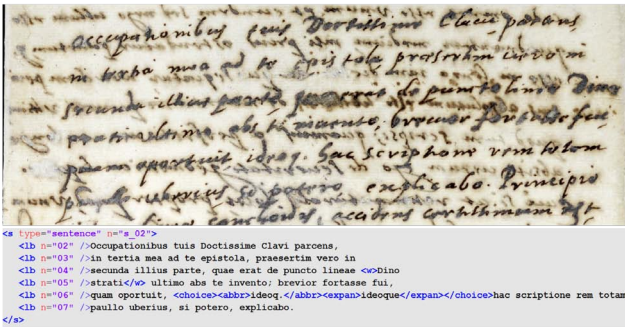 occupationibus tuis Doctissime Clavi parcens,
in tertia mea ad te epistola praesertim vero in
secunda illius parte, quae erat de puncto lineae Dino
strati ultimo abs te invento, brevior fortasse fui,
quam oportuit, ideoq. hac scriptione rem totam
paullo uberius, si potero, explicabo. Principio
accidens certissimum est
<s type="sentence" n="s_02">
<lb n="02" />Occupationibus tuis Doctissime Clavi parcens,
<lb n="03" />in tertia mea ad te epistola, praesertim vero in
<lb n="04" />secunda illius parte, quae erat de puncto lineae <w>Dino
<lb n="05" />strati</w> ultimo abs te invento; brevior fortasse fui,
<lb n="06" />quam oportuit, <choice><abbr>ideoq.</abbr><expan>ideoque</expan></choice>hac scriptione rem totam
<lb n="07" />paullo uberius, si potero, explicabo.
</s>